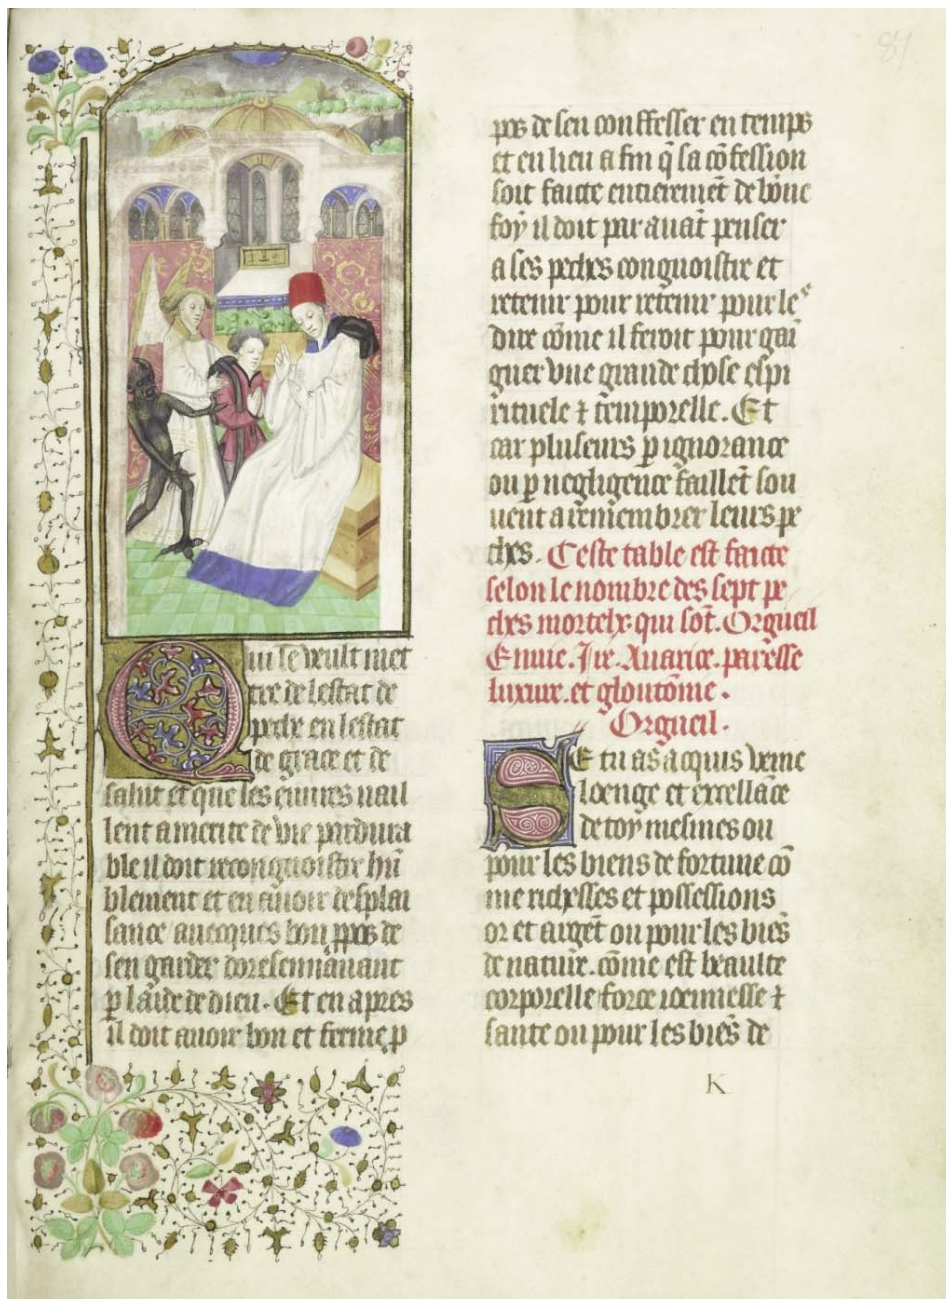 Qui se veult met
tre de lestat de
pechie en lestat
de grace et de
salut et que les euures uail
lent a merite de vie pardura
ble il doit recongnoistre hũ
blement et en auoir desplai
sance auecques bon ꝓpos de
sen garder doresennauant
ꝑ laide de dieu. Et en apres
il doit auoir bon et ferme p
pos de seu conffesser en temps
et en lieu a fin q̃ sa cõfession
soit faicte entieremẽt de bõne
foy il doit par auãt penser
a ses pechies congnoistre et
retenir pour retenir pour les
dire cõme il feroit pour gai
gner vne grande chose espi
rituele ⁊ tẽmporelle. Et
car pluseurs ꝑ ignorance
ou ꝑ negligence faillẽt sou
uent a remembrer leurs pe
chies. Ceste table est faicte
selon le nombre des sept pe
chies mortelx. qui sõt. Orgueil
Enuie. Ire. Auarice. paresse
luxure. et gloutõnie.
Orgueil.
SE tu as acquis veine
loenge et excellãce
de toy mesmes ou
pour les biens de fortune cõ
me richesses et possessions
or et argẽt ou pour les biẽs
de nature. cõme est beaulte
corporelle force ieunesse ⁊
sante ou pour les biẽs de
K
87